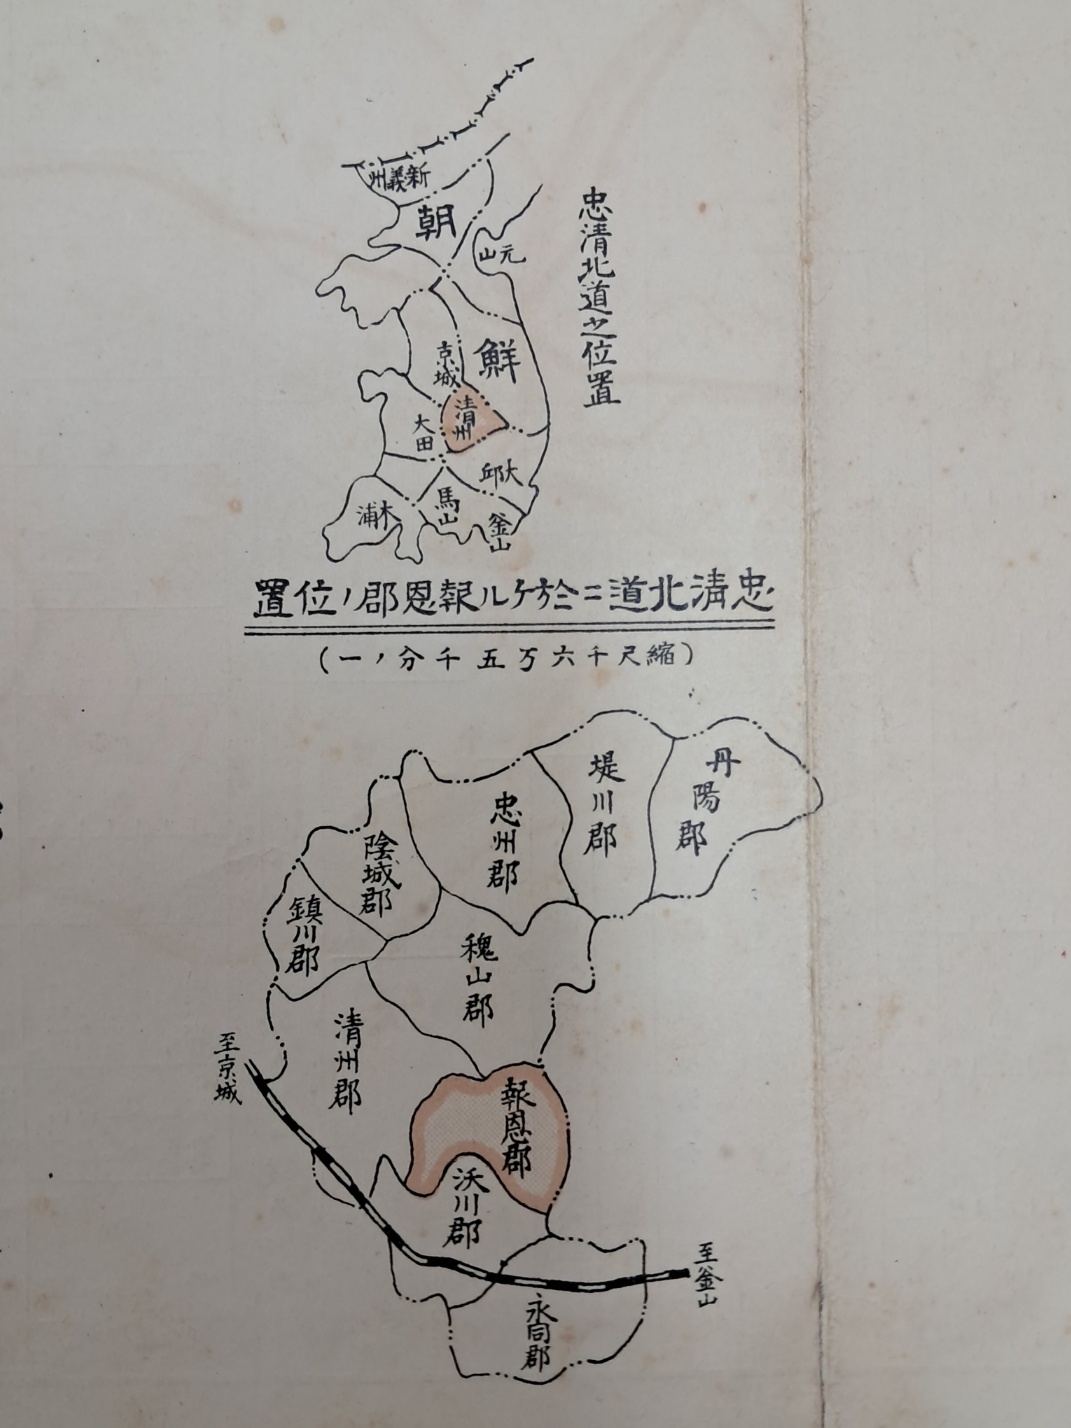 忠清北道之位置
新義州
朝
元山
鮮
京城
清州
大田
大邱
馬山
木浦
釜山
忠清北道ニ於ケル報恩郡ノ位置
(縮尺千六万五千分ノ一)
丹陽郡
堤川郡
忠州郡
陰城郡
鎮川郡
槐山郡
清州郡
至京城
報恩郡
沃川郡
至釜山
永同郡